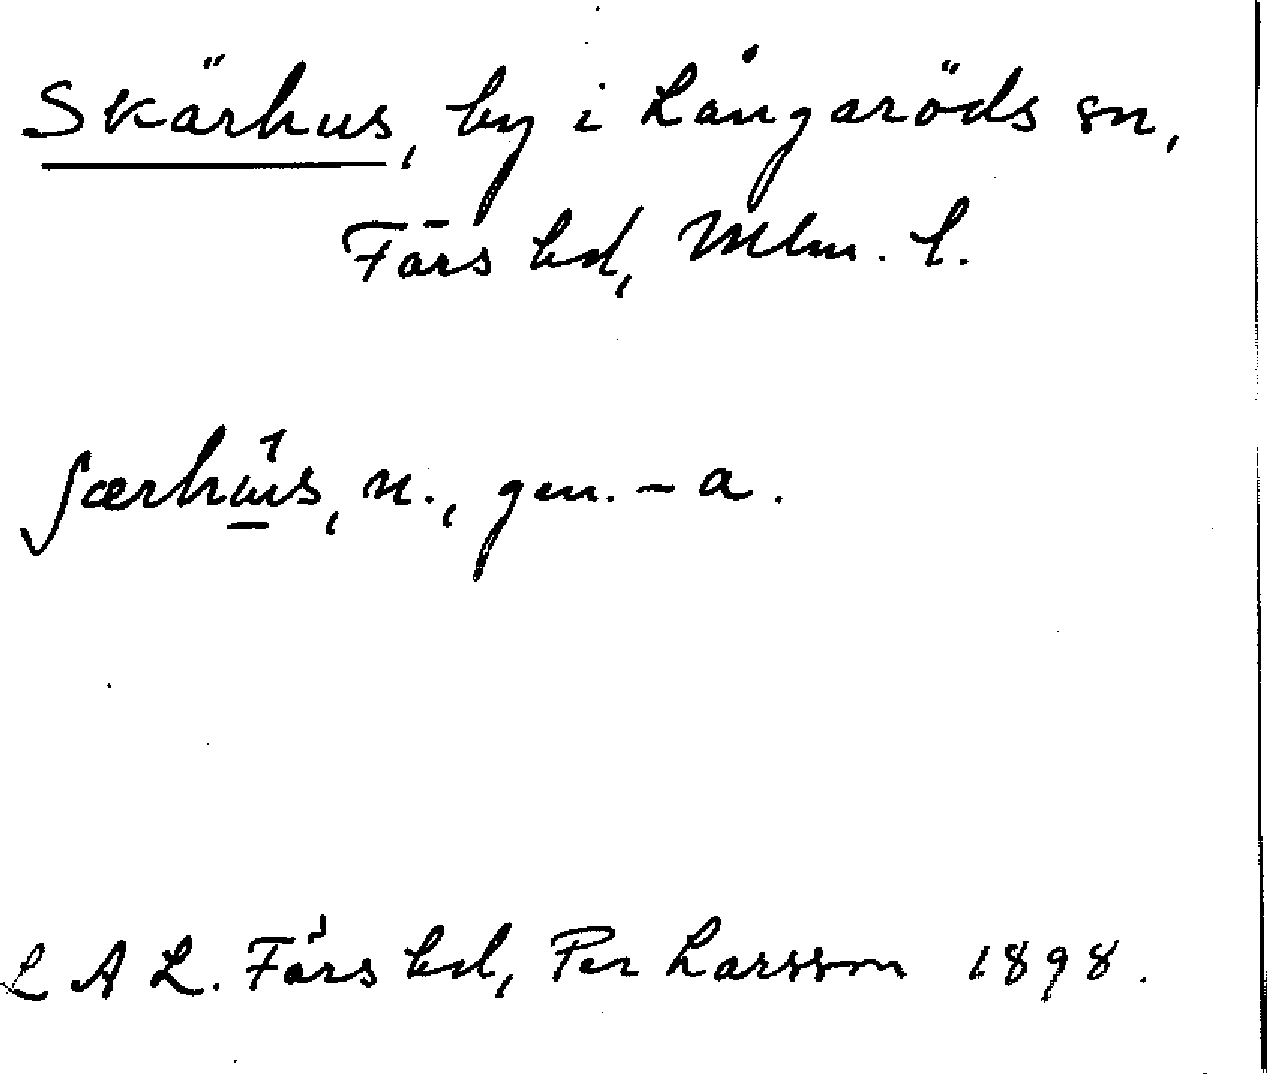 Skärhus, by i Långaröds sn,
Färs hd, Mlm. l.
ʃærhu̱s, n., gen. – a.
L A L. Färs hd, Per Larsson 1898.